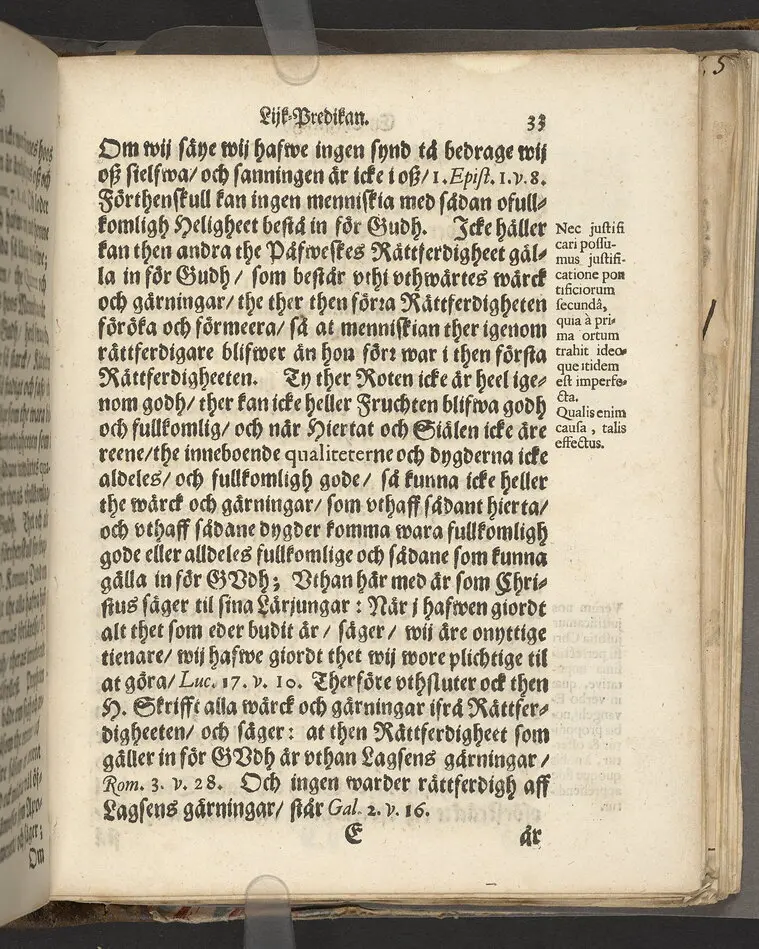 Lijk-Predikan. 33
Om wij säye wij hafwe ingen synd tå bedrage wij
oß sielfwa/ och sanningen är icke i oß/ 1. Epist. 1. v. 8.
Förthenskull kan ingen menniskia med sådan ofull-
komligh Heligheet bestå in för Gudh. Icke håller
kan then andra the Påfweskes Rättferdigheet gäl-
la in för Gudh/ som består vthi vthwärtes wärck
och gärningar/ the ther then förra Rättferdigheten
föröka och förmeera/ så at menniskian ther igenom
rättferdigare blifwer än hon först war i then första
Rättferdigheeten. Ty ther Roten icke är heel ige-
nom godh/ ther kan icke heller Fruchten blifwa godh
och fullkomlig/ och när Hiertat och Siälen icke äre
reene/ the inneboende qualiteterne och dygderna icke
aldeles/ och fullkomligh gode/ så kunna icke heller
the wärck och gärningar/ som vthaff sådant hierta/
och vthaff sådane dygder komma wara fullkomligh
gode eller alldeles fullkomlige och sådane som kunna
gälla in för GVdh; Vthan här med är som Chri-
stus säger til sina Lärjungar: När j hafwen giordt
alt thet som eder budit är/ säger/ wij äre onyttige
tienare/ wij hafwe giordt thet wij wore plichtige til
at göra/ Luc. 17. v. 10. Therföre vthsluter ock then
H. Skrifft alla wärck och gärningar ifrå Rättfer-
digheeten/ och säger: at then Rättferdigheet som
gäller in för GVdh är vthan Lagsens gärningar/
Rom. 3. v. 28. Och ingen warder rättferdigh aff
Lagsens gärningar/ står Gal. 2. v. 16.
E är
Nec justifi
cari possu-
mus justifi-
catione pon
tificiorum
secundâ,
quia à pri-
ma ortum
trahit ideo-
que itidem
est imperfe-
cta.
Qualis enim
causa, talis
effectus.
Om
5